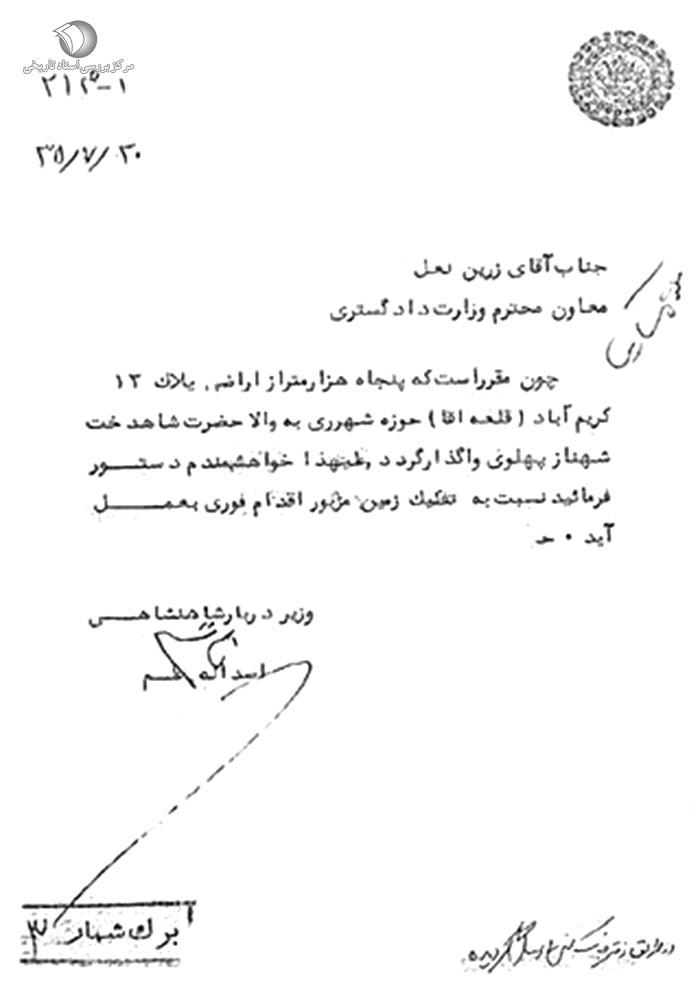 مرکز بررسی اسناد تاریخی
۲۱۴-۱
۳۸/۷/۳۰
جناب آقای زرین نعل
معاون محترم وزارت دادگستری
چون مقرر است که پنجاه هزار متر از اراضی پلاک ۱۳
کریم آباد (قلعه آقا) حوزه شهرری به والا حضرت شاهدخت
شهناز پهلوی واگذار گردد علیهذا خواهشمندم دستور
فرمائید نسبت به تفکیک زمین مزبور اقدام فوری بعمل
آید ۰ حـ
وزیر دربار شاهنشاهی
اسداله علم
برگ شمار ۳
گردیده